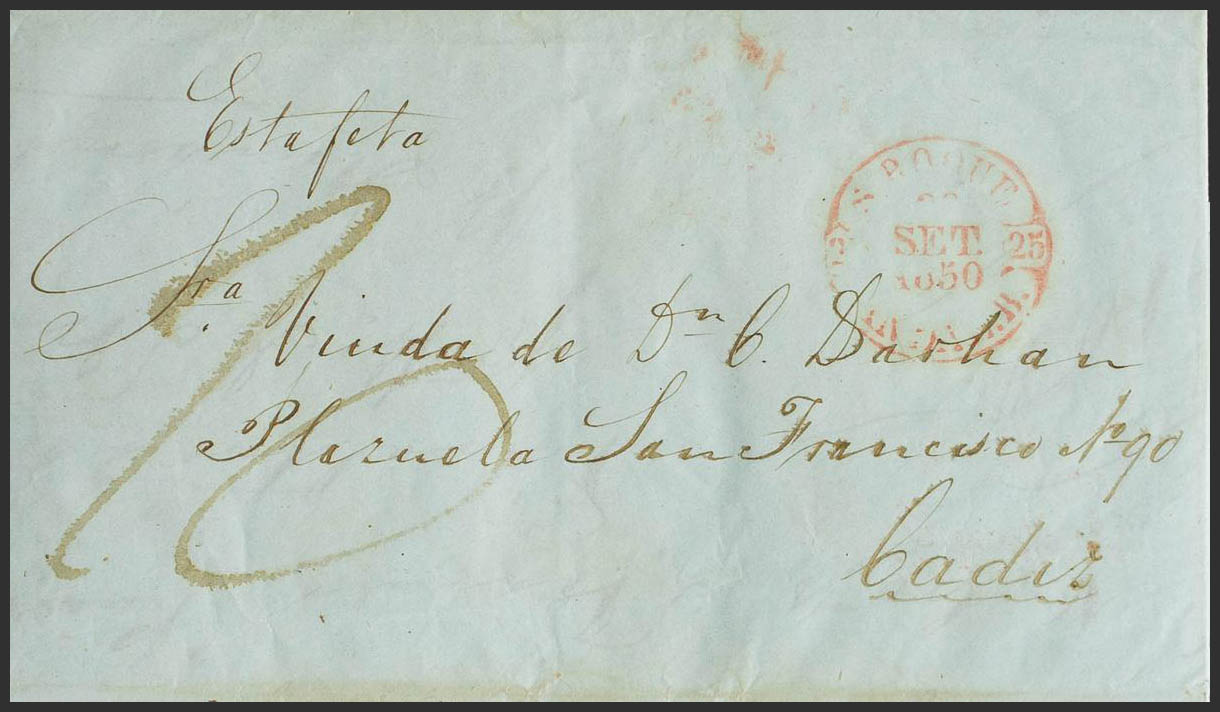 Estafeta
Sra Viuda de Dn C. Darhan
Plazuela San Francisco No 90
Cadiz
S. ROQUE
SET.
1850
25